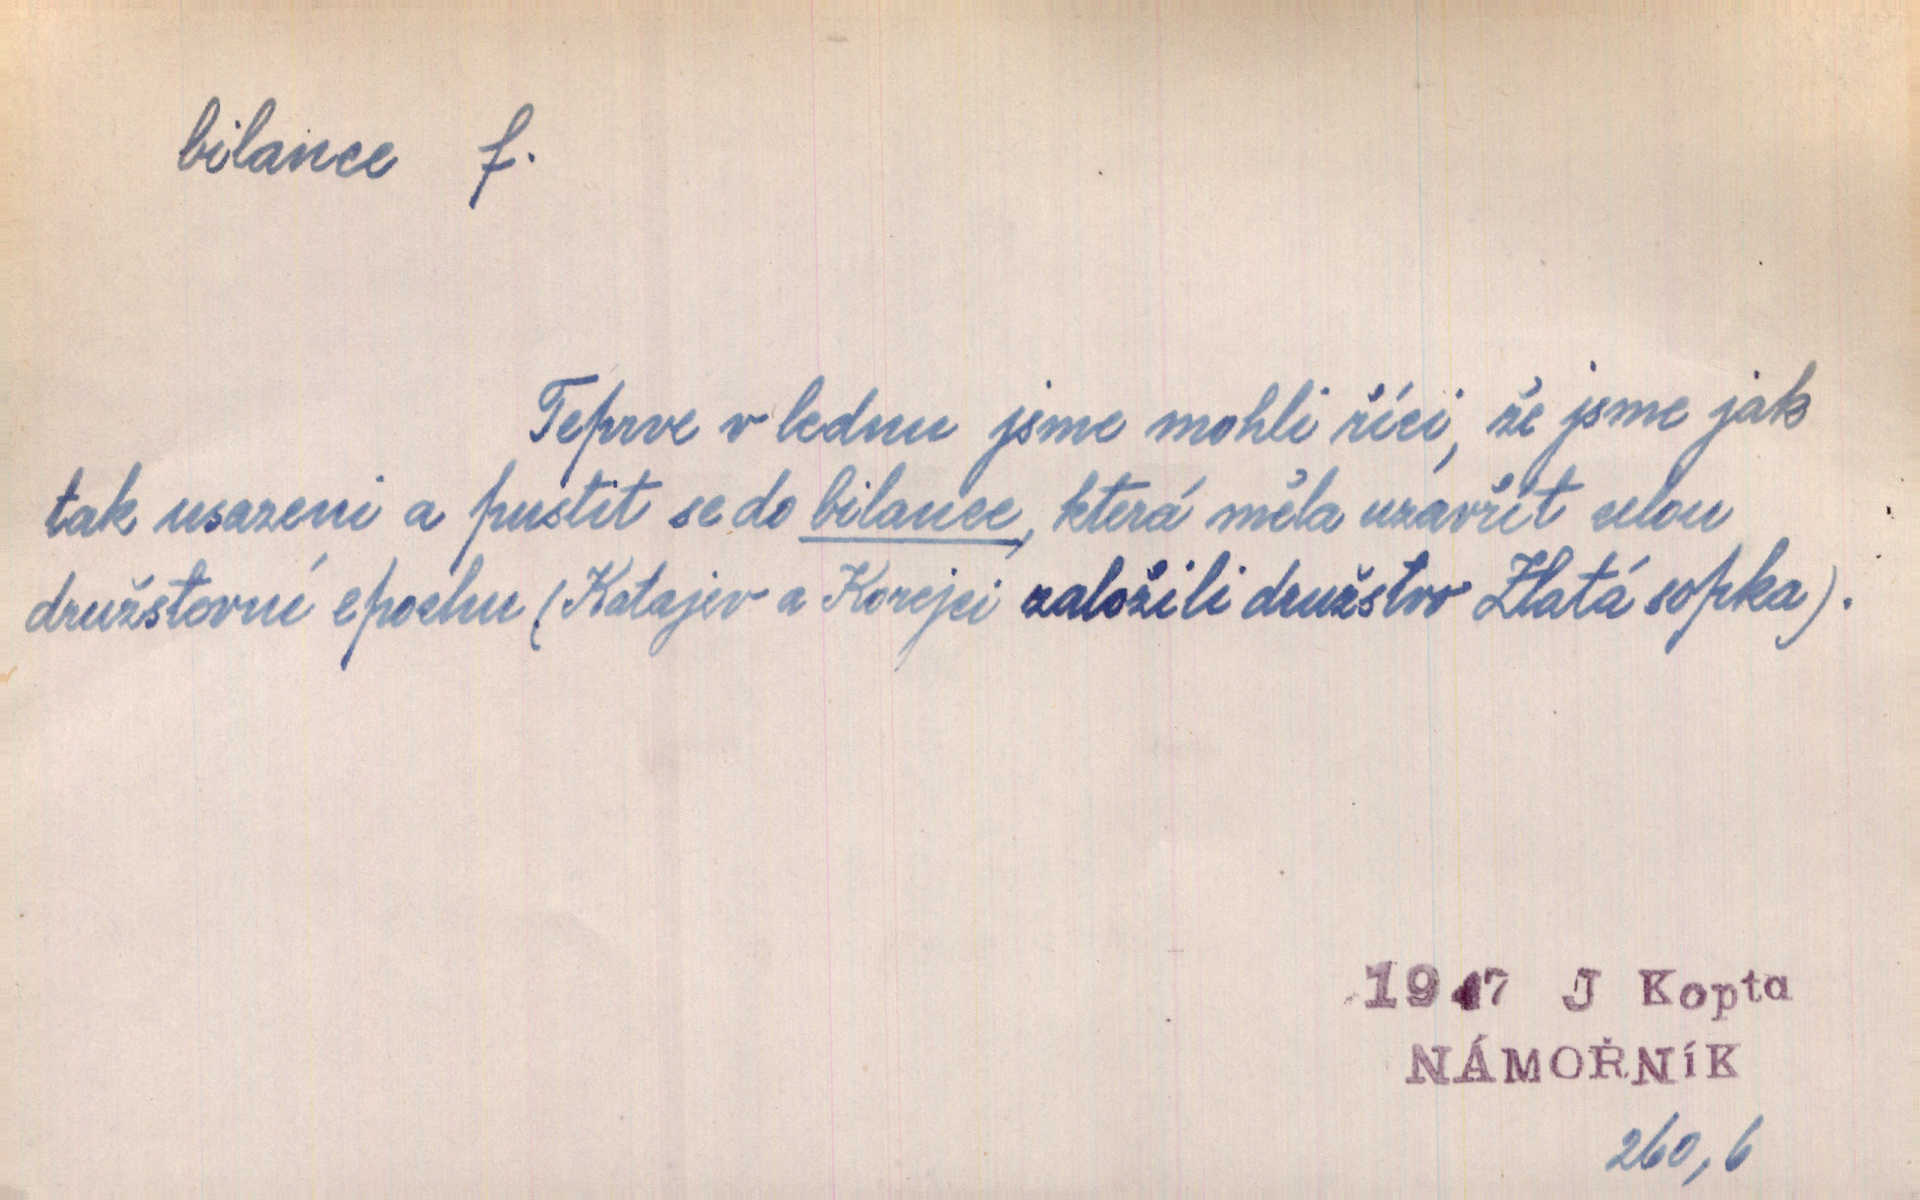 bilance f.
Teprve v lednu jsme mohli říci, že jsme jak
tak usazeni a pustit se do bilance, která měla uzavřít celou
družstevní epochu (Katajev a Korejci založili družstvo Zlatá sopka).
1947 J Kopta
NÁMOŘNíK
260,6